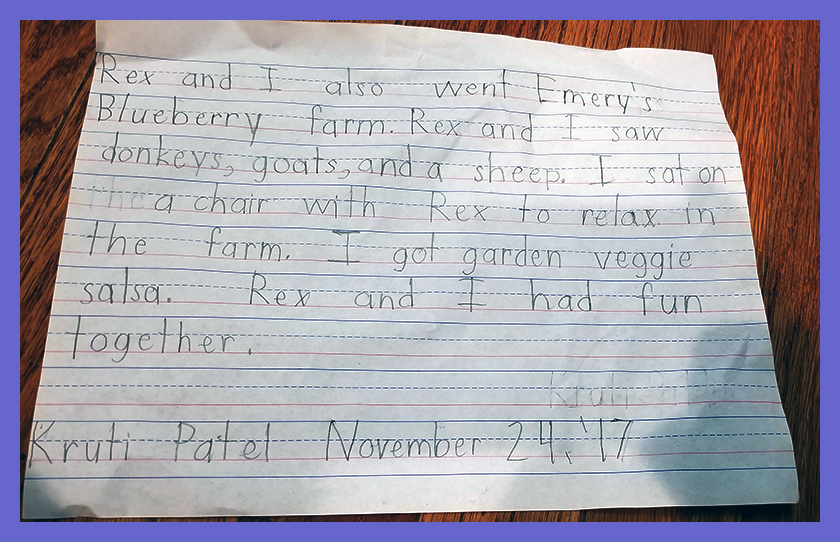 Rex and I also went Emery's
Blueberry farm. Rex and I saw
donkeys, goats, and a sheep. I sat on
the a chair with Rex to relax in
the farm. I got garden veggie
salsa. Rex and I had fun
together.
Kruti
Kruti Patel November 24, '17